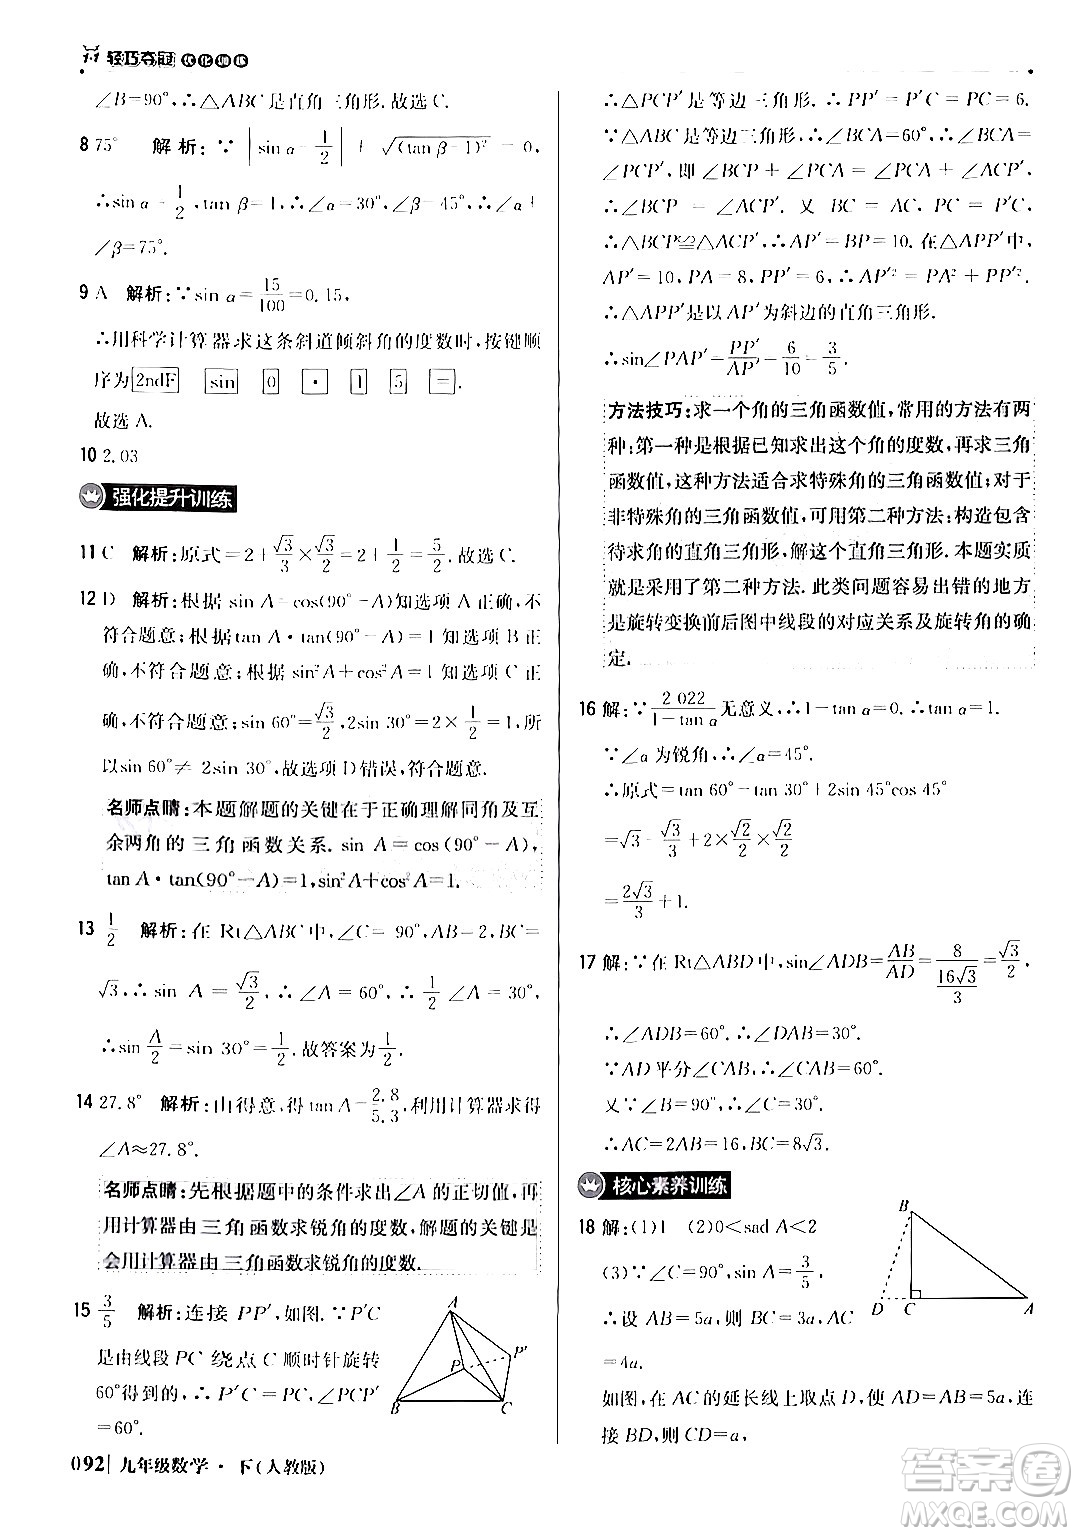 1+1 轻巧夺冠 优化训练
∠B=90°,∴△ABC是直角三角形.故选C.
8 75° 解析:∵|sin α-1/2|+√(tan β-1)²=0,
∴sin α=1/2,tan β=1,∴∠α=30°,∠β=45°,∴∠α+
∠β=75°.
9 A 解析:∵sin α=15/100=0.15,
∴用科学计算器求这条斜道倾斜角的度数时,按键顺
序为 2ndF sin 0 · 1 5 = .
故选 A.
10 2.03
强化提升训练
11 C 解析:原式=2+√3/3×√3/2=2+1/2=5/2.故选C.
12 D 解析:根据 sin A=cos(90°-A)知选项 A 正确,不
符合题意;根据tan A·tan(90°-A)=1知选项 B 正
确,不符合题意;根据 sin²A+cos²A=1知选项 C 正
确,不符合题意;sin 60°=√3/2,2sin 30°=2×1/2=1,所
以sin 60°≠2sin 30°,故选项D错误,符合题意.
名师点睛:本题解题的关键在于正确理解同角及互
余两角的三角函数关系.sin A=cos(90°-A),
tan A·tan(90°-A)=1,sin²A+cos²A=1.
13 1/2 解析:在 Rt△ABC中,∠C=90°,AB=2,BC=
√3,∴sin A=√3/2,∴∠A=60°,∴1/2∠A=30°,
∴sin A/2=sin 30°=1/2.故答案为1/2.
14 27.8° 解析:由得意,得tan A=2.8/5.3,利用计算器求得
∠A≈27.8°.
名师点睛:先根据题中的条件求出∠A的正切值,再
用计算器由三角函数求锐角的度数,解题的关键是
会用计算器由三角函数求锐角的度数.
15 3/5 解析:连接 PP′,如图.∵P′C
是由线段PC绕点C顺时针旋转
60°得到的,∴P′C=PC,∠PCP′
=60°.
A
P
P′
B
C
092 九年级数学·下(人教版)
∴△PCP′是等边三角形.∴PP′=P′C=PC=6.
∵△ABC是等边三角形,∴∠BCA=60°,∴∠BCA=
∠PCP′,即∠BCP+∠PCA=∠PCA+∠ACP′,
∴∠BCP=∠ACP′.又 BC=AC,PC=P′C,
∴△BCP≌△ACP′,∴AP′=BP=10.在△APP′中,
AP′=10,PA=8,PP′=6,∴AP′²=PA²+PP′²,
∴△APP′是以 AP′为斜边的直角三角形.
∴sin∠PAP′=PP′/AP′=6/10=3/5.
方法技巧:求一个角的三角函数值,常用的方法有两
种:第一种是根据已知求出这个角的度数,再求三角
函数值,这种方法适合求特殊角的三角函数值;对于
非特殊角的三角函数值,可用第二种方法:构造包含
待求角的直角三角形,解直角三角形.本题实质
就是采用了第二种方法.此类问题容易出错的地方
是旋转变换前后图中线段的对应关系及旋转角的确
定.
16 解:∵2 022/(1-tan α)无意义,∴1-tan α=0.∴tan α=1.
∵∠α 为锐角,∴∠α=45°.
∴原式=tan 60°-tan 30°+2sin 45°cos 45°
=√3-√3/3+2×√2/2×√2/2
=2√3/3+1.
17 解:∵在 Rt△ABD中,sin∠ADB=AB/AD=8/(16√3/3)=√3/2,
∴∠ADB=60°.∴∠DAB=30°.
∵AD平分∠CAB,∴∠CAB=60°.
又∵∠B=90°,∴∠C=30°.
∴AC=2AB=16,BC=8√3.
核心素养训练
18 解:(1)1 (2)0<sad A<2
(3)∵∠C=90°,sin A=3/5,
∴设 AB=5a,则 BC=3a,AC
=4a.
B
D
C
A
如图,在 AC的延长线上取点 D,使 AD=AB=5a,连
接 BD,则CD=a,
答案圈
MXQE.COM